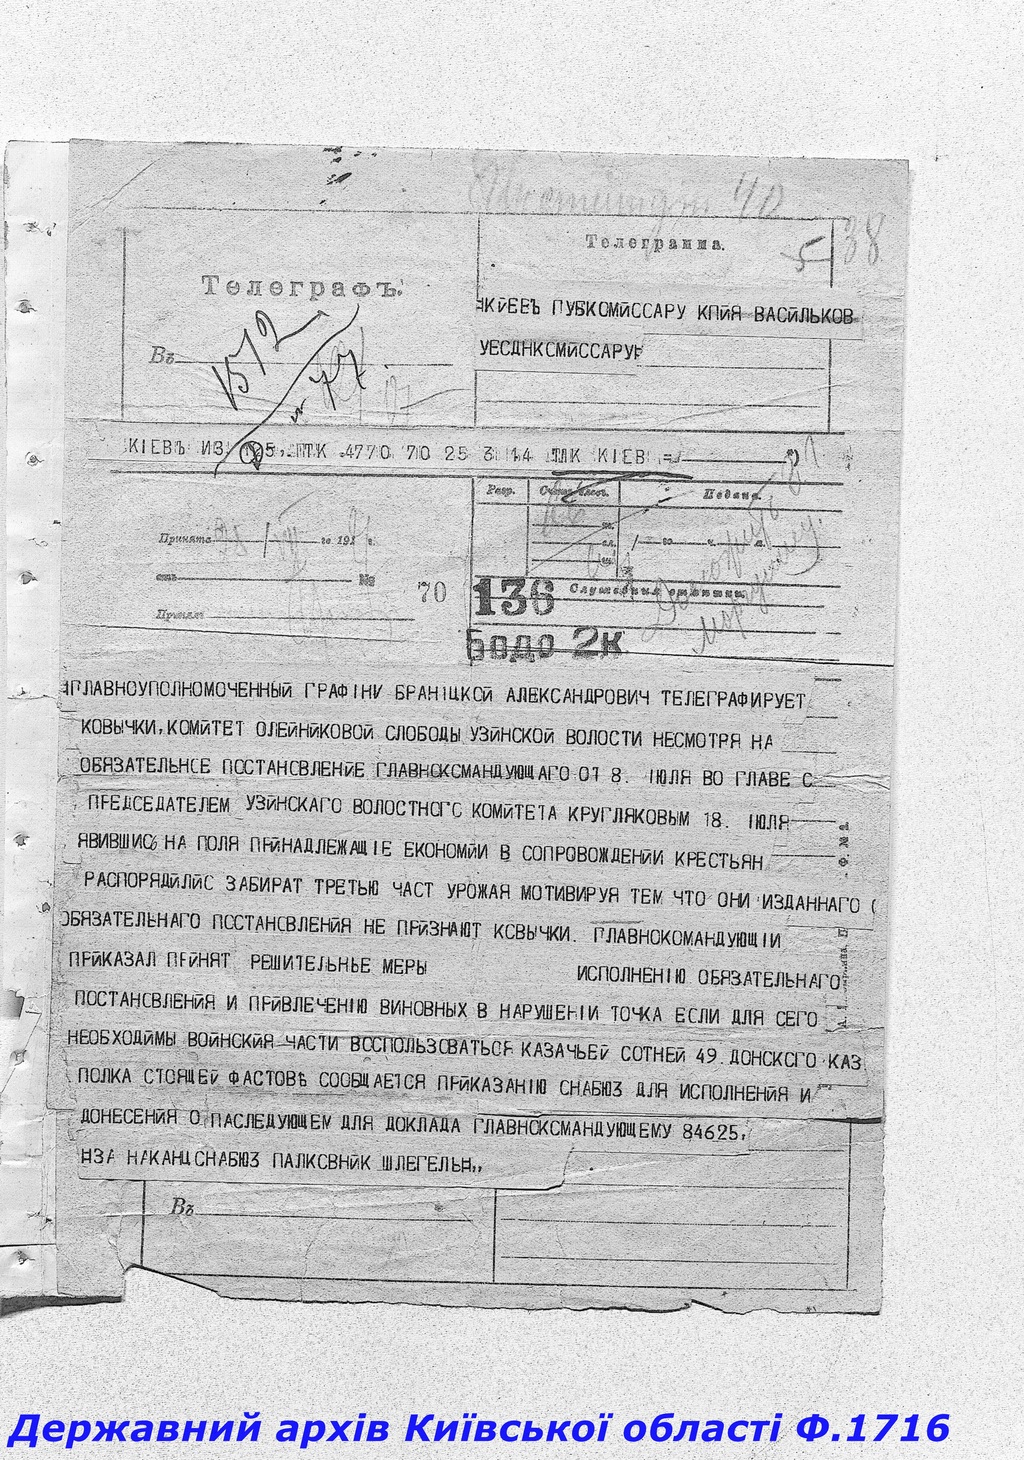 40
38
Телеграмма.
5
Телеграфъ.
НКИЕВЪ ПУБКОМИССАРУ КПИЯ ВАСИЛЬКОВ
1572
Въ
УЕСДНКСМИССАРУН
КІЕВЪ ИЗ 105, ПТК 4770 70 25 3 14 ТЛК КІЕВ =
Разр.
Счетъ словъ.
Подана.
Принята 28 / VII го 191 г.
отъ №
70
136 Служебныя отмѣтки
Принял
Долгорук
Бодо 2к.
НГЛАВНОУПОЛНОМОЧЕННЫЙ ГРАФІНИ БРАНІЦКОЙ АЛЕКСАНДРОВИЧ ТЕЛЕГРАФИРУЕТ
КОВЫЧКИ, КОМИТЕТ ОЛЕЙНИКОВОЙ СЛОБОДЫ УЗИНСКОЙ ВОЛОСТИ НЕСМОТРЯ НА
ОБЯЗАТЕЛЬНСЕ ПССТАНСВЛЕНИЕ ГЛАВНСКСМАНДУЮЩАГО ОТ 8. ІЮЛЯ ВО ГЛАВЕ С
ПРЕДСЕДАТЕЛЕМ УЗИНСКАГО ВОЛОСТНОГС КОМИТЕТА КРУГЛЯКОВЫМ 18. ІЮЛЯ
ЯВИВШИСЬ НА ПОЛЯ ПРИНАДЛЕЖАЩІЕ ЕКОНОМІИ В СОПРОВОЖДЕНИИ КРЕСТЬЯН
РАСПОРЯДИЛИС ЗАБИРАТ ТРЕТЬЮ ЧАСТ УРОЖАЯ МОТИВИРУЯ ТЕМ ЧТО ОНИ ИЗДАННАГО (
ОБЯЗАТЕЛЬНАГО ПССТАНСВЛЕНИЯ НЕ ПРИЗНАЮТ КСВЫЧКИ. ГЛАВНОКОМАНДУЮЩІЙ
ПРИКАЗАЛ ПРИНЯТ РЕШИТЕЛЬНЬЕ МЕРЫ ИСПОЛНЕНІЮ ОБЯЗАТЕЛЬНАГО
ПОСТАНСВЛЕНИЯ И ПРИВЛЕЧЕНІЮ ВИНОВНЫХ В НАРУШЕНІИ ТОЧКА ЕСЛИ ДЛЯ СЕГО
НЕОБХОДИМЫ ВОИНСКИЯ ЧАСТИ ВССПОЛЬЗСВАТЬСЯ КАЗАЧЬЕЙ СОТНЕЙ 49. ДОНСКСГО КАЗ
ПОЛКА СТОЯЩЕЙ ФАСТОВѢ СООБЩАЕТСЯ ПРИКАЗАНІЮ СНАБЮЗ ДЛЯ ИСПОЛНЕНИЯ И
ДОНЕСЕНИЯ О ПАСЛЕДУЮЩЕМ ДЛЯ ДОКЛАДА ГЛАВНОКСМАНДУЮЩЕМУ 84625,
НЗА НАКАНЦСНАБЮЗ ПАЛКСВНИК ШЛЕГЕЛЬН,,
Въ
Ф. № 2
Державний архів Київської області Ф.1716